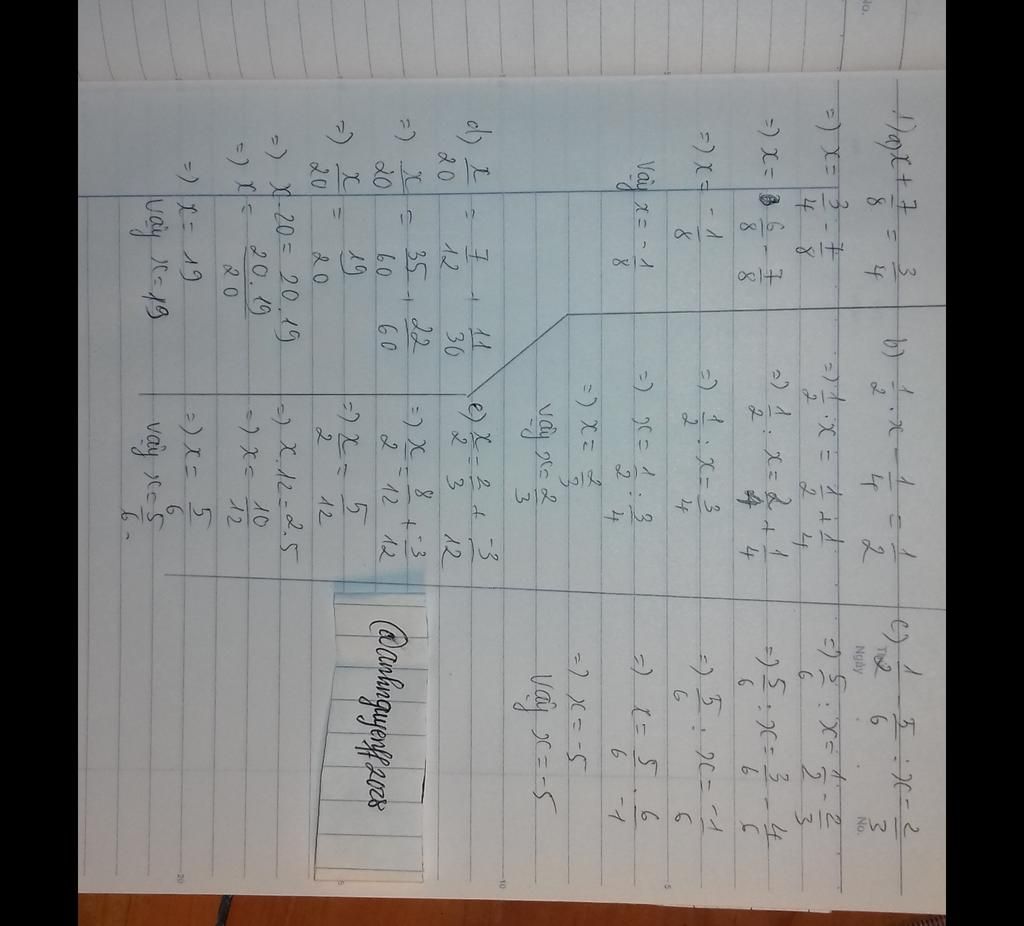 No.
Ngày
Thứ
No.
1) a) x + 7/8 = 3/4
=) x = 3/4 - 7/8
=) x = 6/8 - 7/8
=) x = -1/8
Vậy x = -1/8
b) 1/2 : x - 1/4 = 1/2
=) 1/2 : x = 1/2 + 1/4
=) 1/2 : x = 2/4 + 1/4
=) 1/2 : x = 3/4
=) x = 1/2 : 3/4
=) x = 2/3
Vậy x = 2/3
c) 1/2 - 5/6 : x = 2/3
=) 5/6 : x = 1/2 - 2/3
=) 5/6 : x = 3/6 - 4/6
=) 5/6 : x = -1/6
=) x = 5/6 . 6/-1
=) x = -5
Vậy x = -5
d) x/20 = 7/12 + 11/30
=) x/20 = 35/60 + 22/60
=) x/20 = 19/20
=) x . 20 = 20 . 19
=) x = 20 . 19/20
=) x = 19
Vậy x = 19
e) x/2 = 2/3 + -3/12
=) x/2 = 8/12 + -3/12
=) x/2 = 5/12
=) x . 12 = 2 . 5
=) x = 10/12
=) x = 5/6
Vậy x = 5/6.
@anhnguyenff2028
5
10
5
20